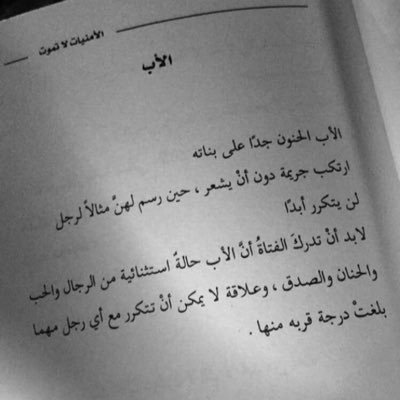 الأمنيات لا تموت
الأب
الأب الحنون جدًا على بناته
ارتكب جريمة دون أنْ يشعر ، حين رسم لهنَّ مثالاً لرجل
لن يتكرر أبدًا
لابد أنْ تدركَ الفتاةُ أنَّ الأب حالةٌ استثنائية من الرجال والحب
والحنان والصدق ، وعلاقة لا يمكن أنْ تتكرر مع أي رجل مهما
بلغتْ درجة قربه منها .